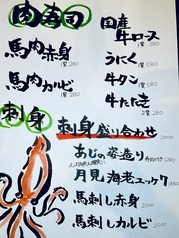 肉寿司
馬肉赤身
1貫 280
馬肉カルビ
1貫 280
国産
牛ロース
1貫 380
うにく 1貫 580
牛タン 1貫 580
牛たたき
2貫 580
刺身
刺身盛り合わせ 2500
あじの姿造り
月見海老ユッケ 1480
馬刺し赤身 2500
馬刺しカルビ 2500